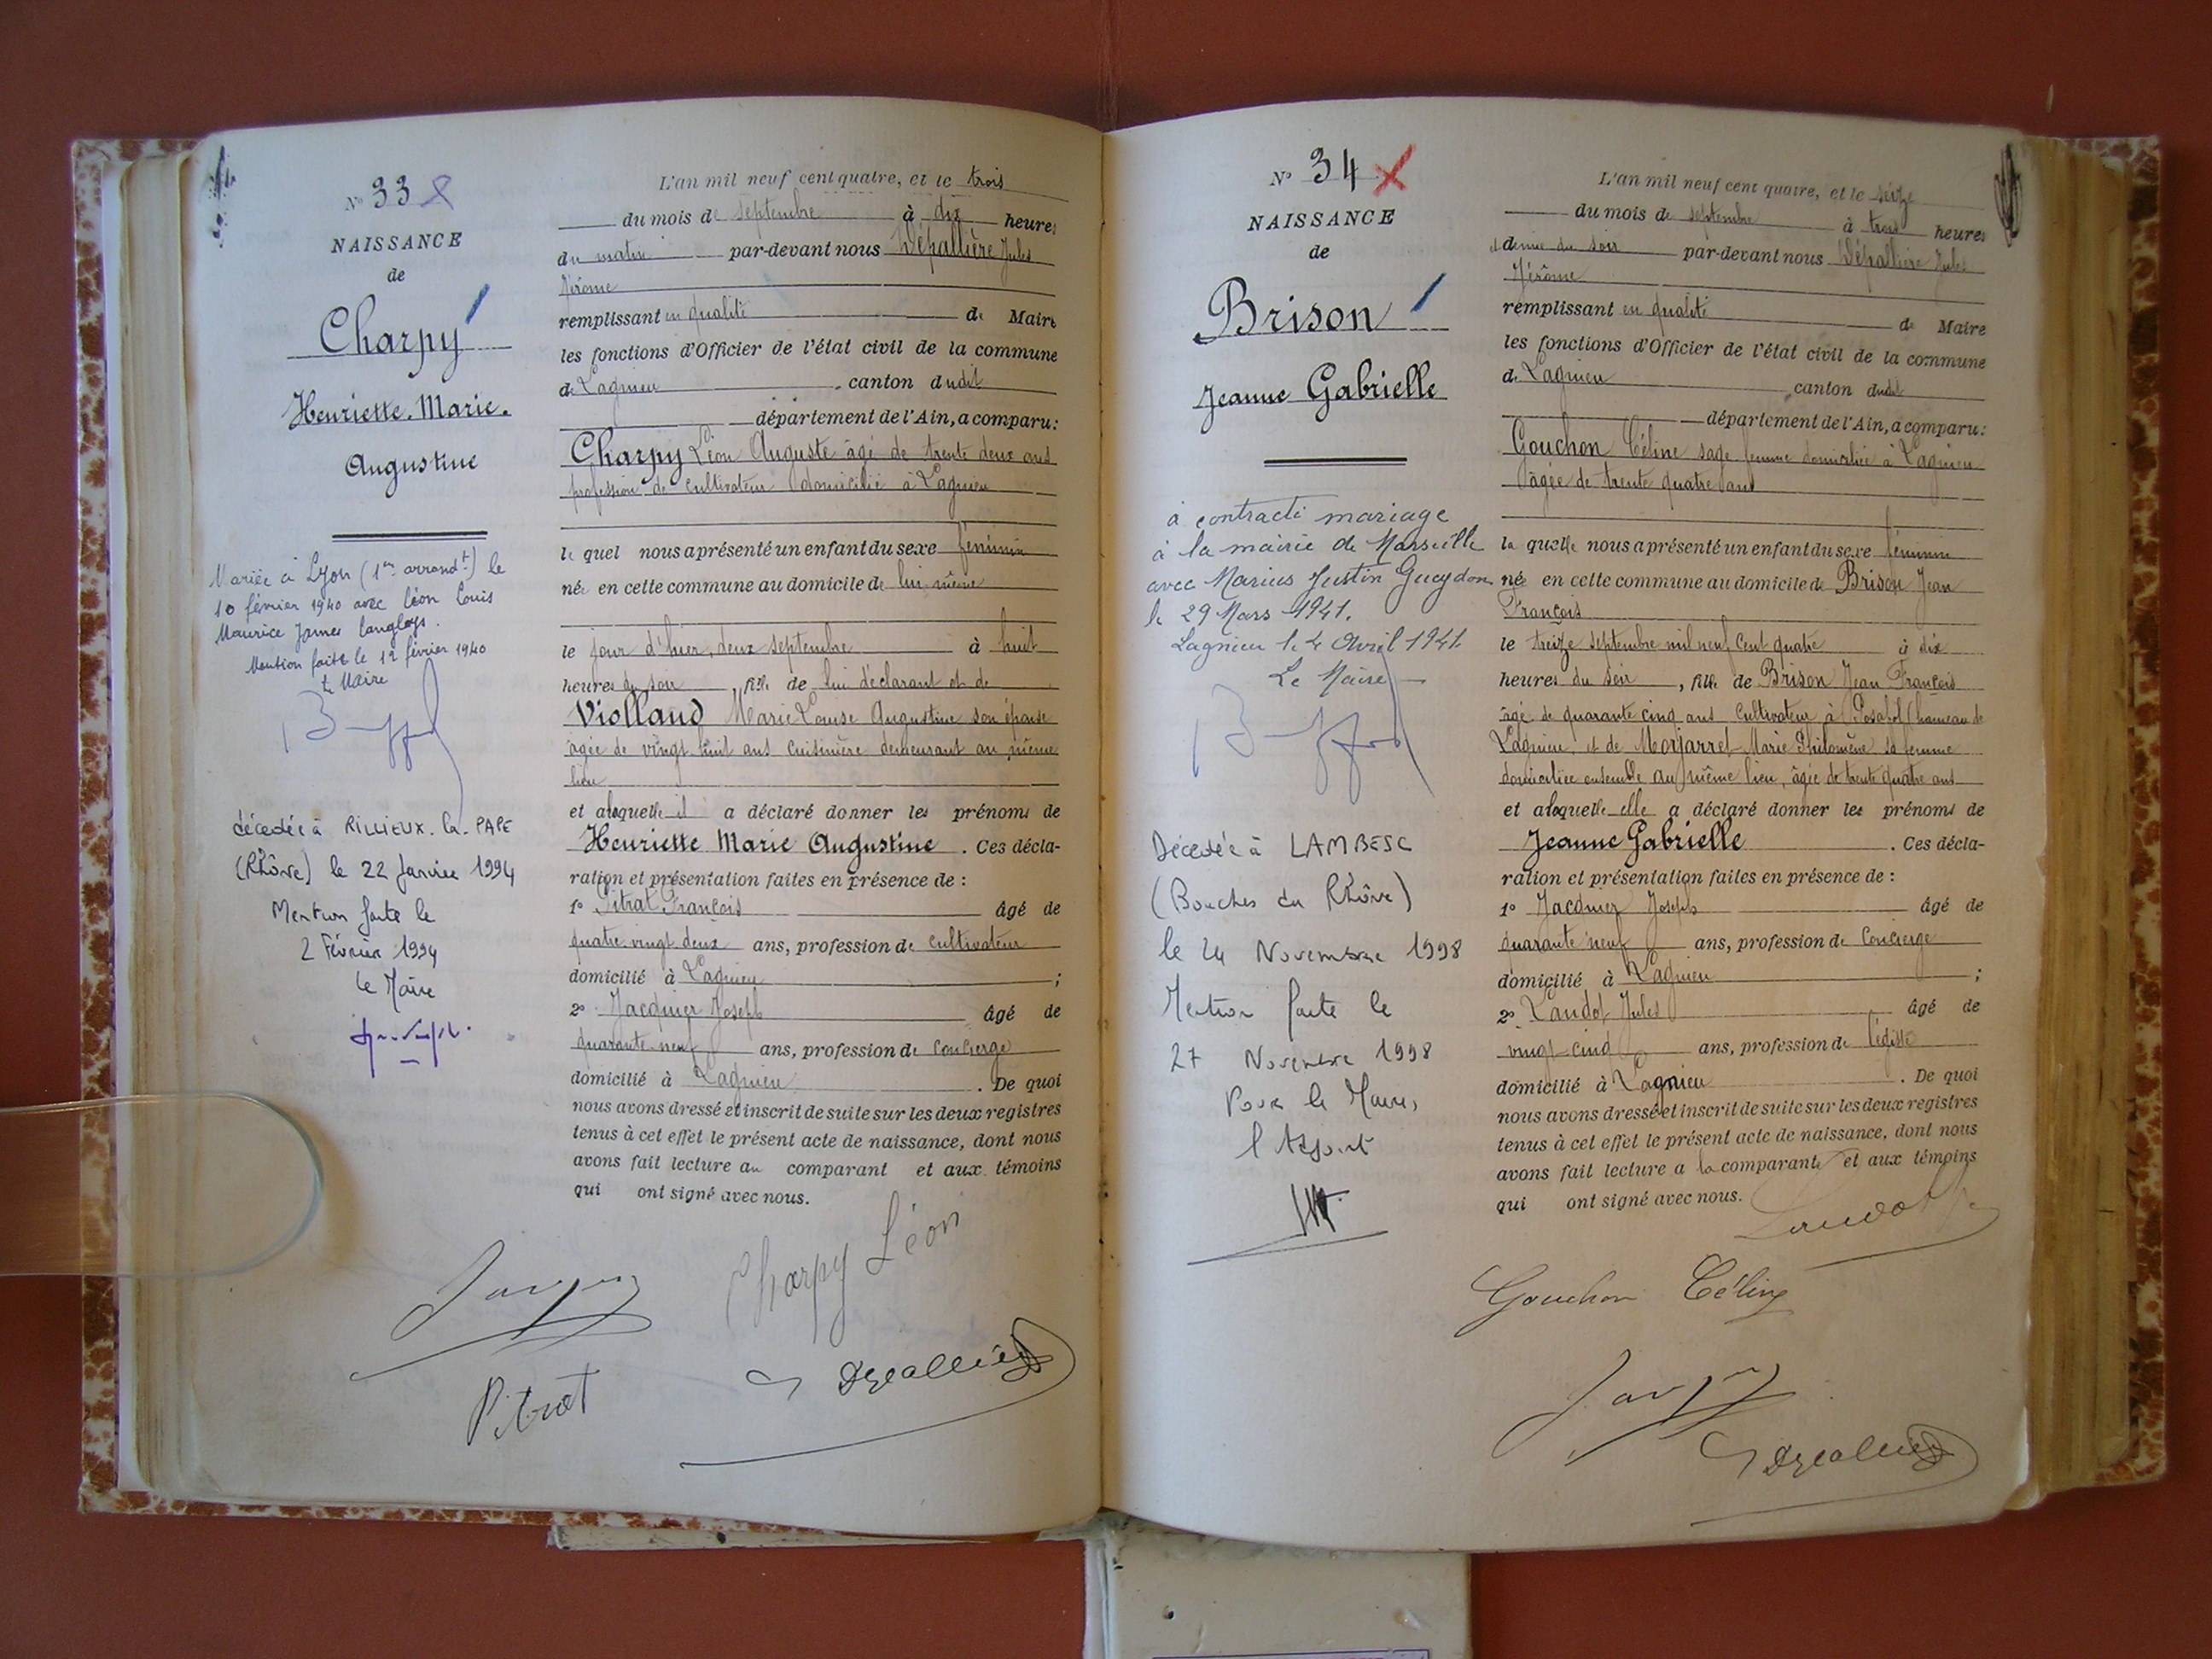 N° 33
NAISSANCE
de
Charpy
Henriette Marie
Augustine
Mariée à Lyon (1er arrondt) le
10 février 1940 avec Léon Louis
Maurice James Langloys.
Mention faite le 12 février 1940
Le Maire
décédée à RILLIEUX-la-PAPE
(Rhône) le 22 Janvier 1994
Mention faite le
2 Février 1994
le Maire
L'an mil neuf cent quatre, et le trois
du mois de septembre à dix heures
du matin par-devant nous Dépallière Jules
Jérôme
remplissant en qualité de Maire
les fonctions d'Officier de l'état civil de la commune
de Lagnieu, canton dudit
département de l'Ain, a comparu:
Charpy Léon Auguste âgé de trente deux ans
profession de cultivateur domicilié à Lagnieu
le quel nous a présenté un enfant du sexe féminin
née en cette commune au domicile de lui même
le jour d'hier, deux septembre à huit
heures du soir, fille de lui déclarant et de
Violland Marie Louise Augustine son épouse
âgée de vingt huit ans cuisinière demeurant au même
lieu
et à laquelle il a déclaré donner les prénoms de
Henriette Marie Augustine. Ces décla-
ration et présentation faites en présence de :
1° Pitrat François âgé de
quatre vingt deux ans, profession de cultivateur
domicilié à Lagnieu ;
2° Jacquier Joseph âgé de
quarante neuf ans, profession de concierge
domicilié à Lagnieu. De quoi
nous avons dressé et inscrit de suite sur les deux registres
tenus à cet effet le présent acte de naissance, dont nous
avons fait lecture au comparant et aux témoins
qui ont signé avec nous.
Charpy Léon
Pitrat
N° 34
NAISSANCE
de
Brison
Jeanne Gabrielle
a contracté mariage
à la mairie de Marseille
avec Marius Justin Gueydon
le 29 Mars 1941.
Lagnieu le 4 Avril 1941
Le Maire
Décédée à LAMBESC
(Bouches du Rhône)
le 24 Novembre 1998
Mention faite le
27 Novembre 1998
Pour le Maire,
l'Adjoint
L'an mil neuf cent quatre, et le seize
du mois de septembre à trois heures
et demie du soir par-devant nous Dépallière Jules
Jérôme
remplissant en qualité de Maire
les fonctions d'Officier de l'état civil de la commune
de Lagnieu, canton dudit
département de l'Ain, a comparu:
Gouchon Céline sage femme domiciliée à Lagnieu
âgée de trente quatre ans
la quelle nous a présenté un enfant du sexe féminin
née en cette commune au domicile de Brison Jean
François
le treize septembre mil neuf cent quatre à dix
heures du soir, fille de Brison Jean François
âgé de quarante cinq ans cultivateur à Posafol hameau de
Lagnieu, et de Morjarret Marie Philomène sa femme
domiciliée ensemble au même lieu, âgée de trente quatre ans
et à laquelle elle a déclaré donner les prénoms de
Jeanne Gabrielle. Ces décla-
ration et présentation faites en présence de :
1° Jacquier Joseph âgé de
quarante neuf ans, profession de concierge
domicilié à Lagnieu ;
2° Landot Jules âgé de
vingt cinq ans, profession de
domicilié à Lagnieu. De quoi
nous avons dressé et inscrit de suite sur les deux registres
tenus à cet effet le présent acte de naissance, dont nous
avons fait lecture a la comparante et aux témoins
qui ont signé avec nous.
Landot
Gouchon Céline